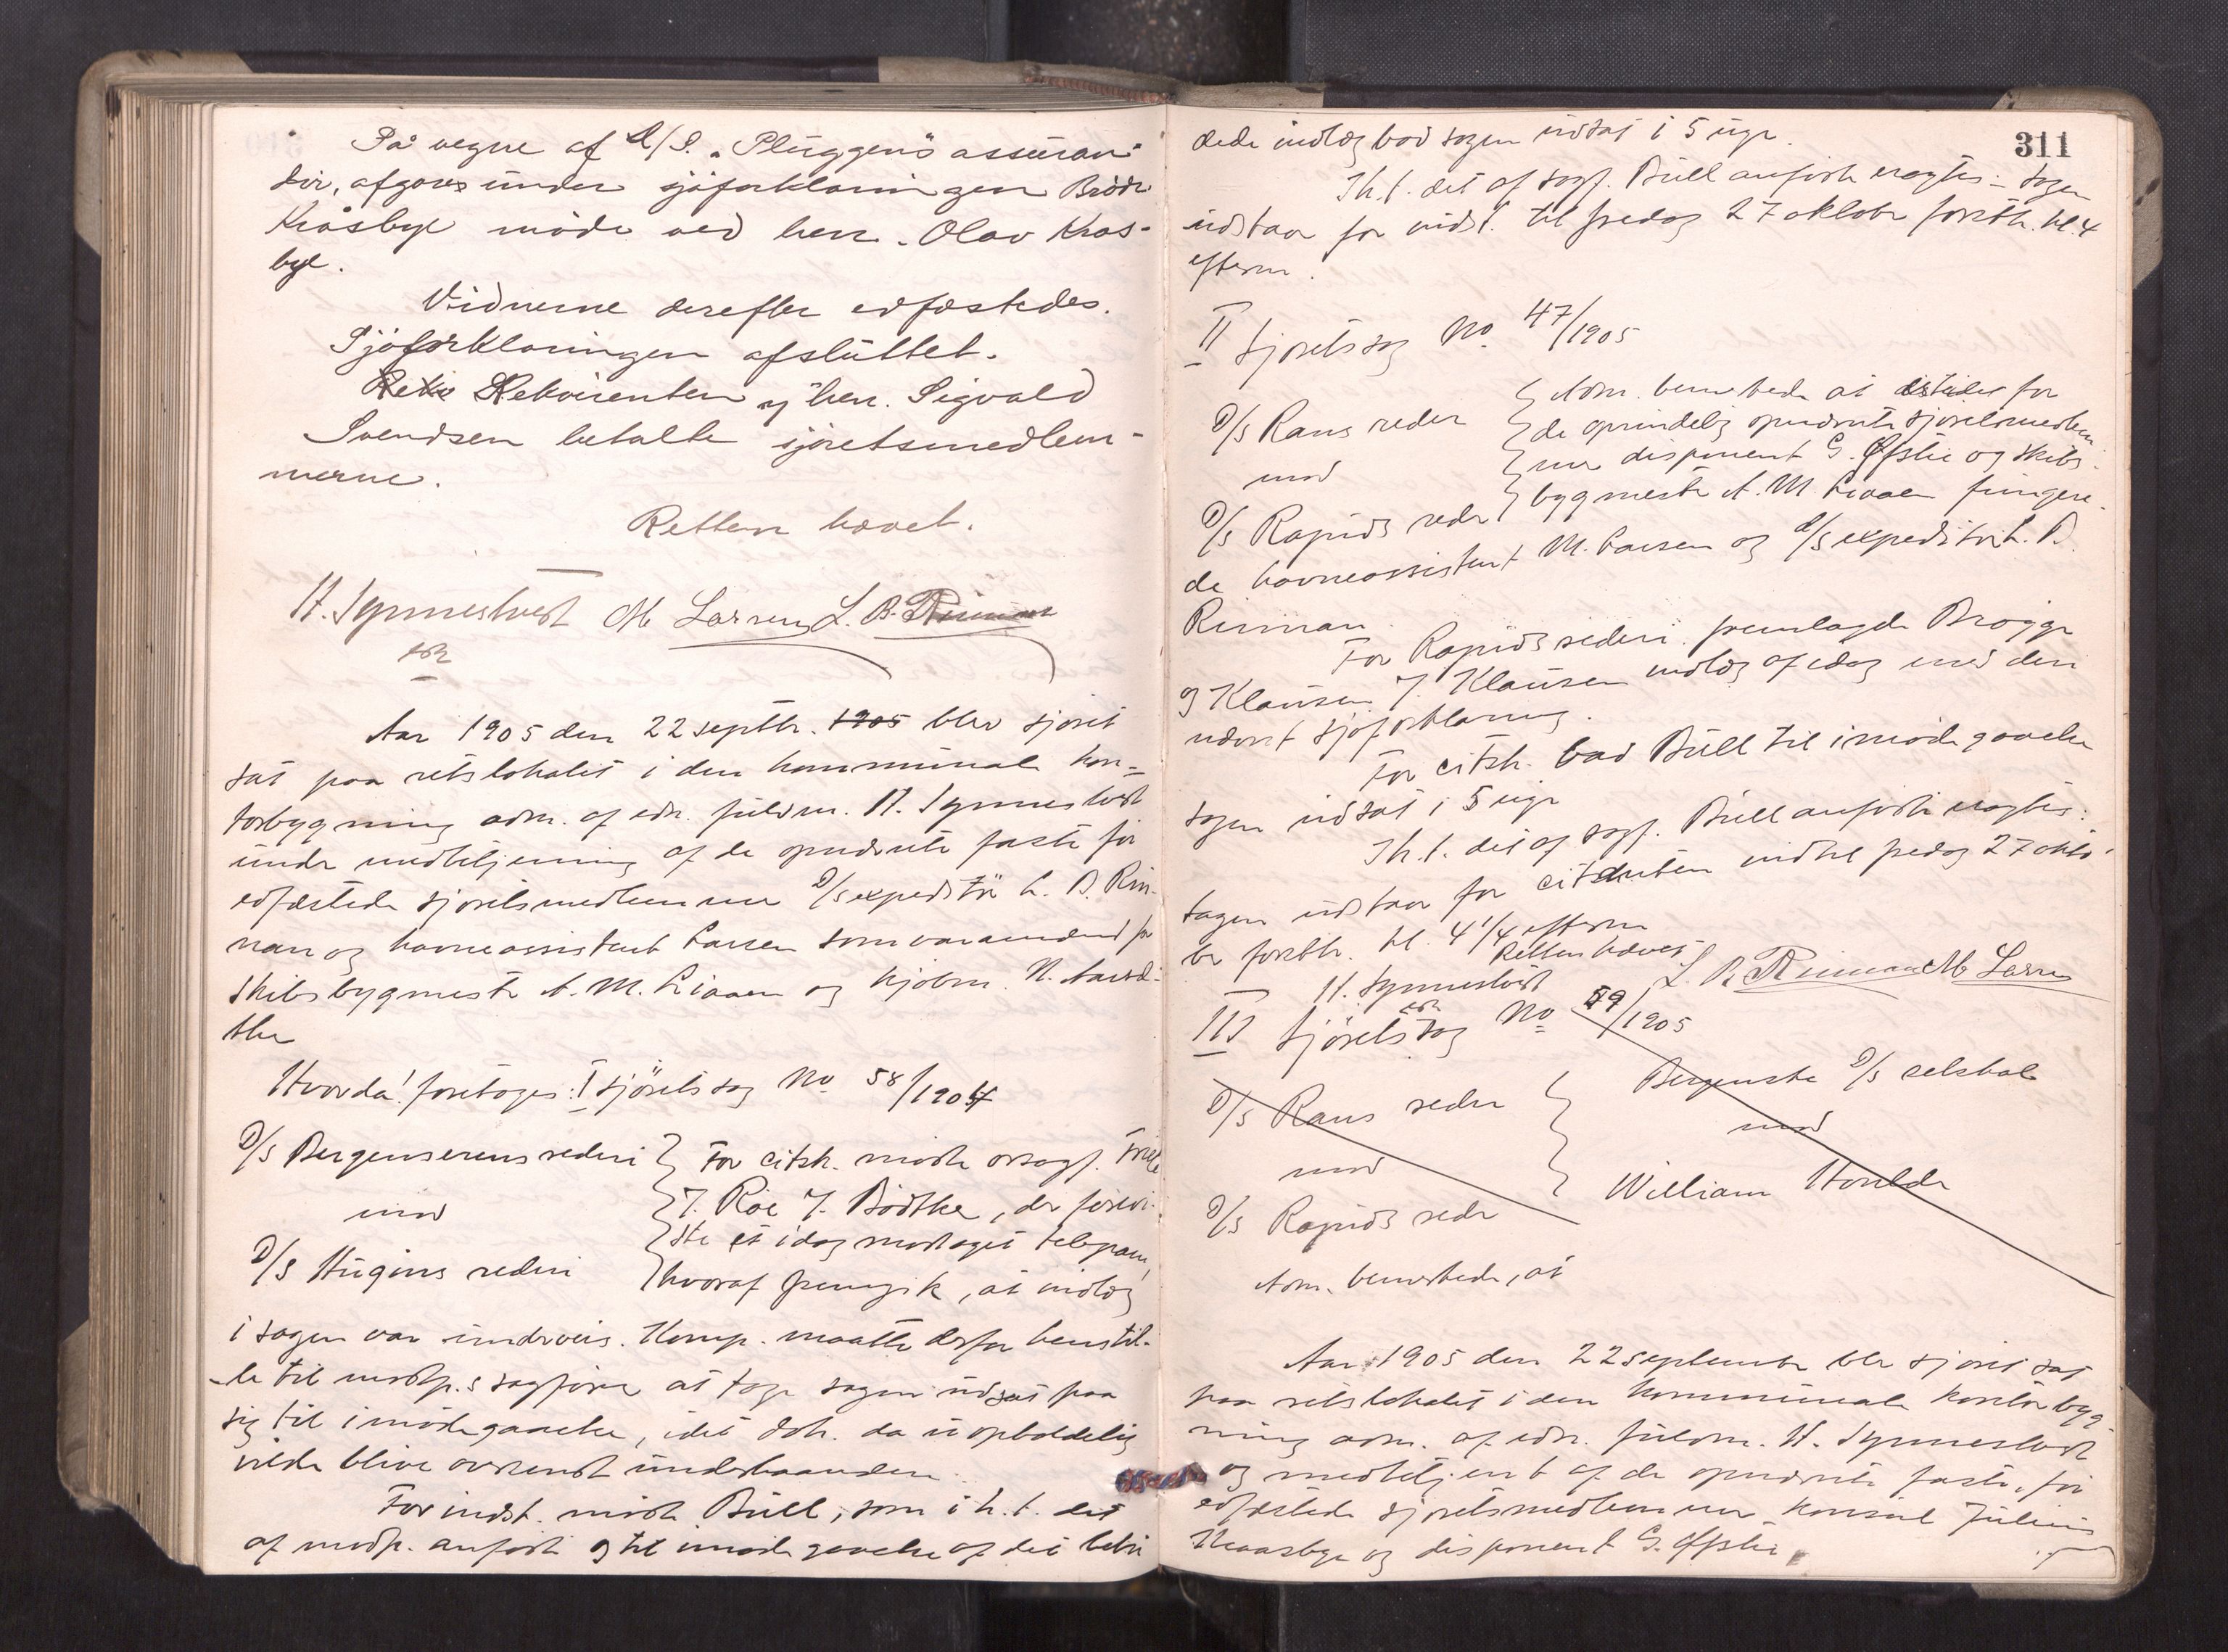 På vegne af D/S. „Pluggens" assuran-
dör, afgaves under sjöforklaringen Brödr
Kråsbye möde ved herr. Olav Krås-
bye.
Vidnerne derefter edfæstedes.
Sjöforklaringen afsluttet.
Rekvirenten herr. Sigvald
Svendsen betalte sjöretsmedlem-
merne.
Retten hævet.
H. Synnestvedt M Larsen L. B. Rinnan
Aar 1905 den 22 septbr. 1905 blev sjöret
sat paa retslokalet i den kommunale kon-
torbygning adm. af edv. fuldm. H. Synnestvedt
under medbetjening af de opnævnte faste för
edfæstede sjöretsmedlemmer D/S expeditör L. B. Rin-
nan og havneassistent Larsen som varamænd for
skibsbygmester A. M. Liaaen og kjöbm. N.
Hvorda! foretoges: I sjöretssag No 58/1904
D/S Bergenserens rederi
mod
D/S Hugins rederi
For citsk. mödte orsagf.
v. Roe v. Bödtker, der forevi-
ste et idag modtaget telegram,
hvoraf fremgik, at indlæg
i sagen var underveis. Komp. maatte derfor henstil-
le til modp.s sagförer at tage sagen udsat paa
sig til imödegaaelse, idet dok. da uopholdelig
vilde blive oversendt underhaanden.
For indst. mödte Bull, som i h. t. det
af modp. anförte og til imödegaaelse af det bebu
311
dede indlæg bad sagen udsat i 5 uger.
Ih. t. det af sagf. Bull anförte eragtes: Sagen
udstaar for indst. til fredag 27 oktober förstk. kl. 4
efterm.
II Sjöretssag No 47/1905
D/S Rans rederi
mod
D/S Rapids rederi
Adm. bemerkede at istedet for
de oprindelig opnævnte sjöretsmedlem
mer disponent G. Öfstie og skibs-
bygmester A. M. Liaaen fungere-
de havneassistent M. Larsen og D/S expeditör L. B.
Rinnan.
For Rapids rederi fremlagde Brögger
og Klausen v. Klausen indlæg af idag med deri
nævnt sjöforklaring.
For citsk. bad Bull til imödegaaelse
sagen udsat i 5 uger
Ih. t. det af sagf. Bull anförte eragtes:
Sagen udstaar for citanten indtil fredag 27 okto-
ber förstk. kl. 4 1/4 efterm
Retten hævet
H. Synnestvedt L. B. Rinnan M Larsen
III Sjöretssag No 59/1905
D/S Rans rederi
mod
D/S Rapids rederi
Bergenske D/S selskab
mod
William
Adm. bemerkede, at
Aar 1905 den 22 september blev sjöret sat
paa retslokalet i den kommunale kontorbyg-
ning adm. af edv. fuldm. H. Synnestvedt
og medbetjent af de opnævnte faste, för
edfæstede sjöretsmedlemmer konsul Julius
Kraasbye og disponent G. Öfstie